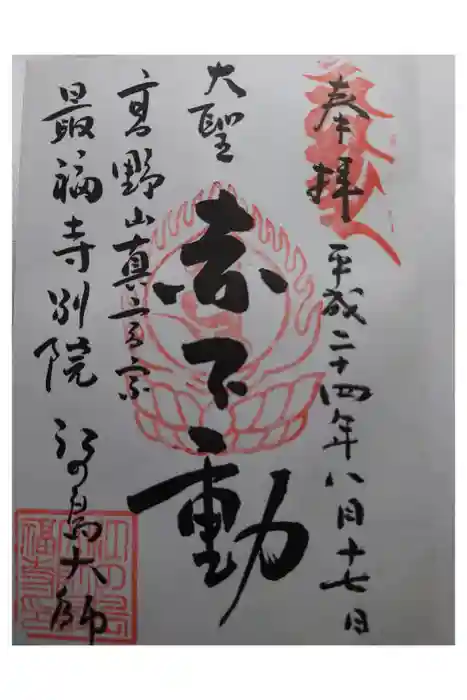 奉拝
平成二十四年八月十七日
大聖
赤不動
高野山真言宗
最福寺別院
江の島大師